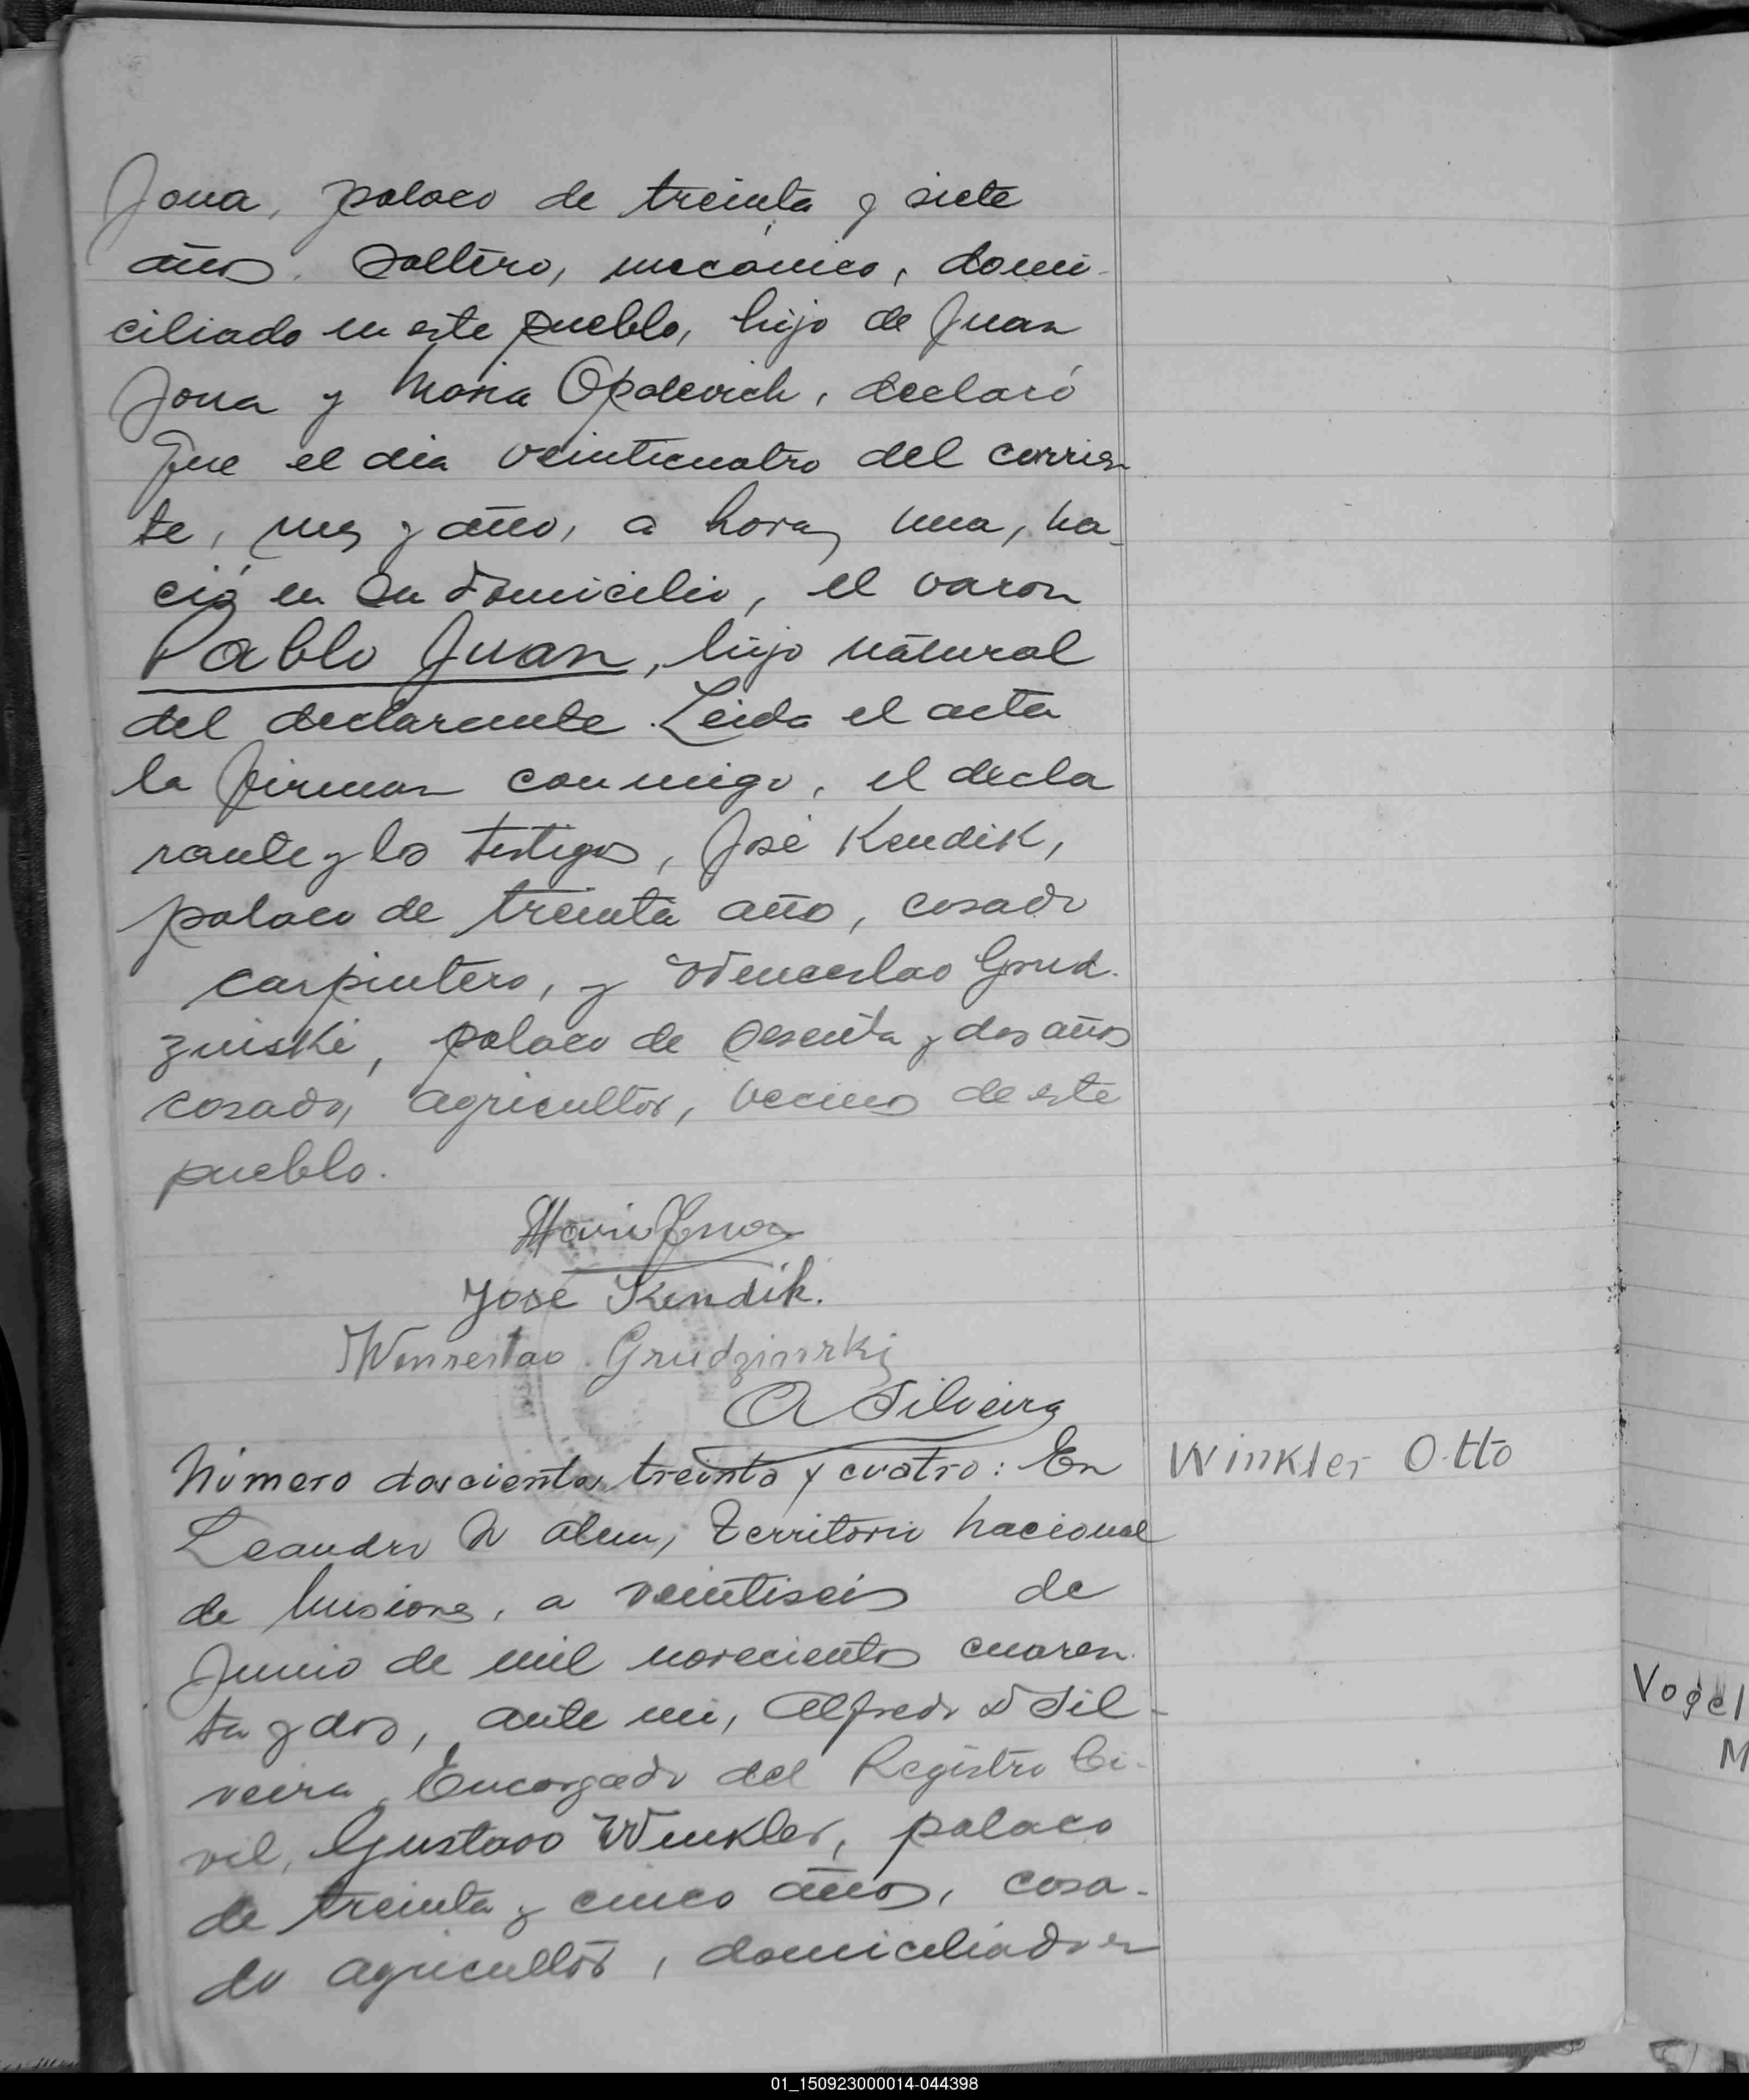 Jona, polaco de treinta y siete
años. Soltero, mecánico, domi-
ciliado en este pueblo, hijo de Juan
Jona y Maria Opolevich, declaró
Que el dia veinticuatro del corrien
te, mes y año, a horas una, na-
ció en su domicilio, el varon
Pablo Juan, hijo natural
del declarante. Leida el acta
la firman conmigo, el decla
rante y los testigos, José Kendik,
polaco de treinta año, casado
carpintero, y Wenceslao Grud-
zinski, polaco de sesenta y dos años
casado, agricultor, vecinos de este
pueblo.
José Kendik.
Wenceslao Grudzinski
A Silveira
Número doscientos treinta y cuatro: En
Winkler Otto
Leandro N Alem, Territorio Nacional
de Misiones, a veintiseis de
Junio de mil novecientos cuaren-
ta y dos, ante mi, Alfredo D Sil-
veira, Encargado del Registro Ci-
vil, Gustavo Winkler, polaco
de treinta y cinco años, casa-
do agricultor, domiciliado en
Vogel
M
01_150923000014-044398